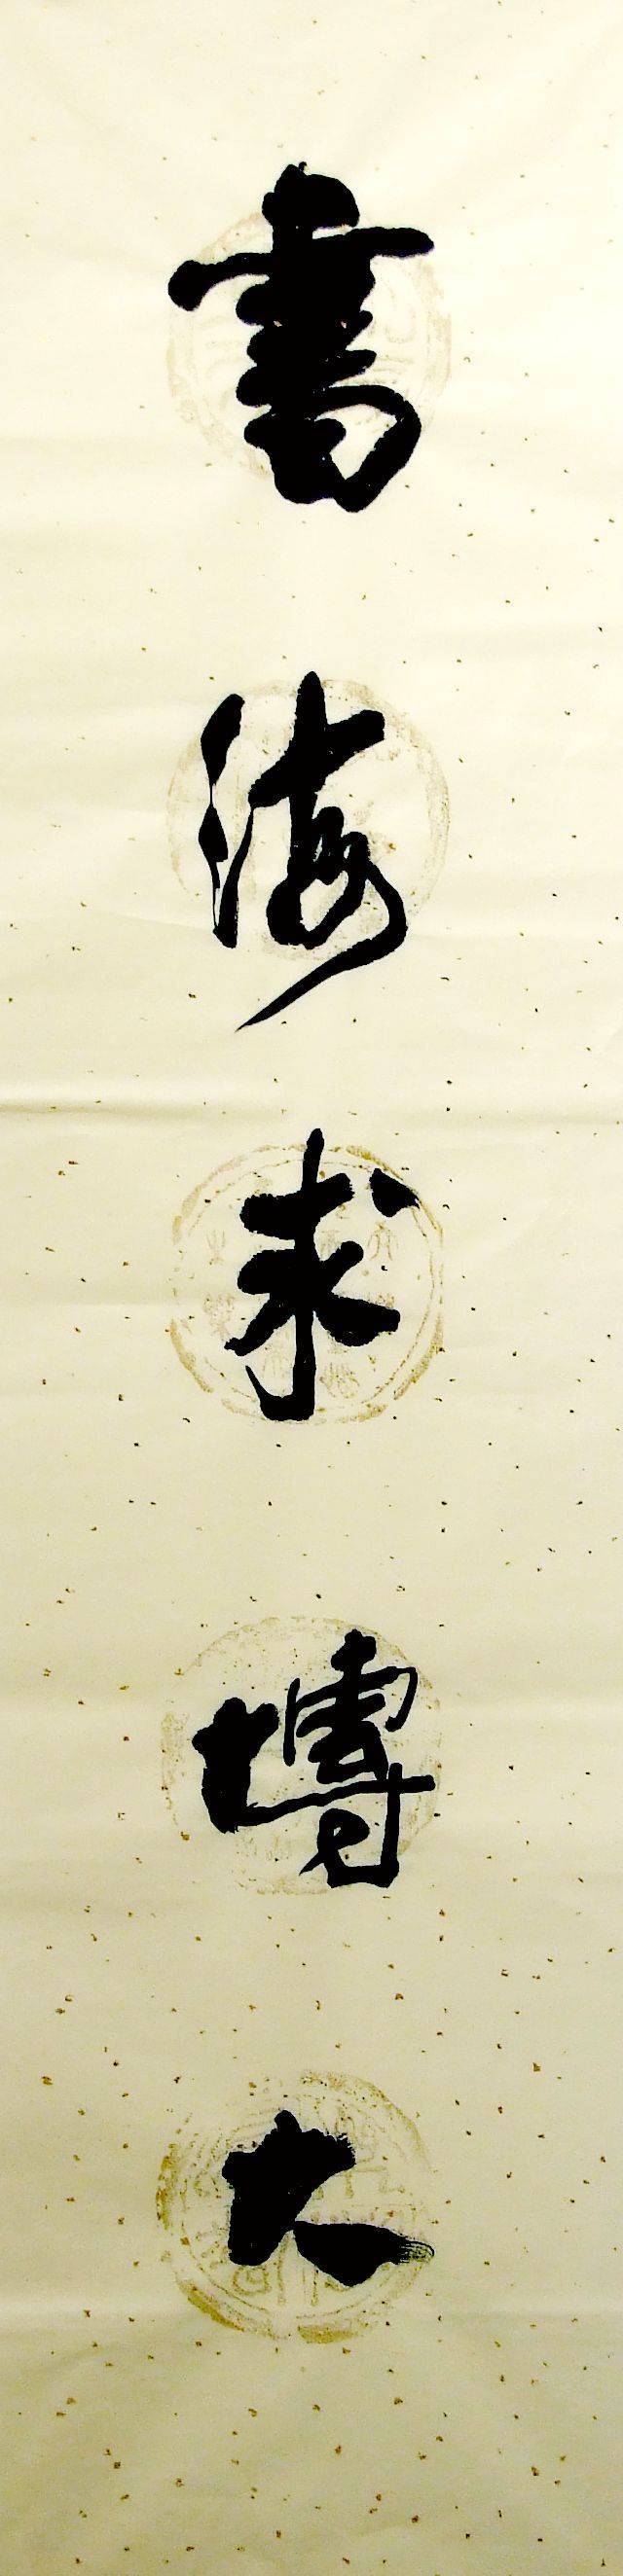 書海求博大